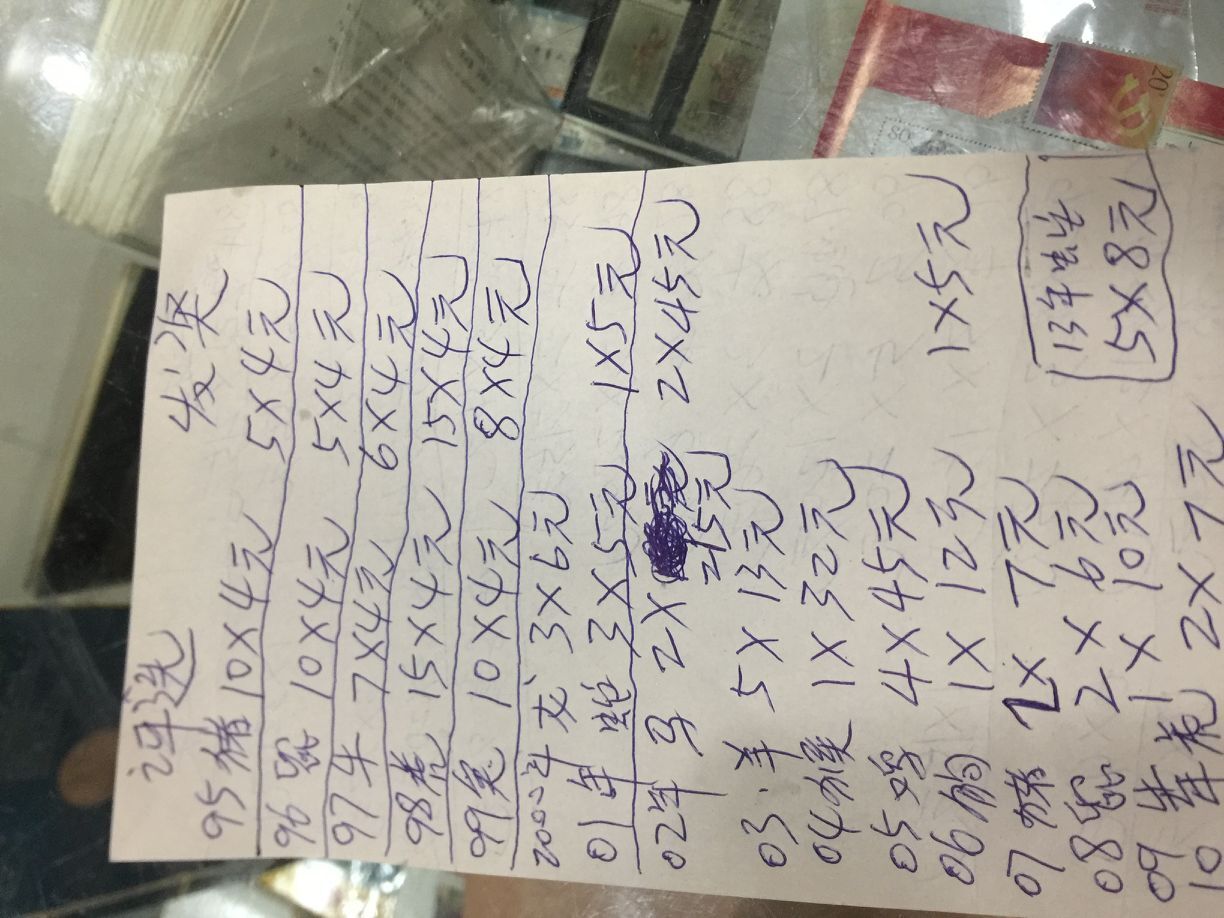 评选 发奖
95 猪 10×4元 5×4元
96 鼠 10×4元 5×4元
97 牛 7×4元 6×4元
98 虎 15×4元 15×4元
99 兔 10×4元 8×4元
2000年 龙 3×6元
01年 蛇 3×5元 1×5元
02年 马 2× 45元 2×45元
03. 羊 5×13元
04 猴 1×32元
05 鸡 4×45元
06 狗 1×12元 1×5元
07 猪 2×7元
08 鼠 2×6元
09 牛 1×10元
10 年 虎 2×7元
13年蛇
5×8元
20
80